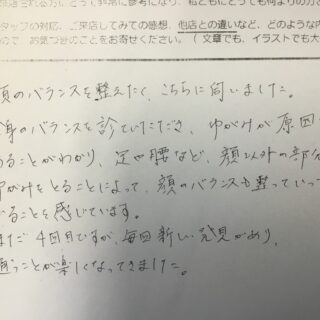 スタッフの対応、ご来店してみての感想、他店との違いなど、どのような内
お気づきのことをお寄せください。(文章でも、イラストでも大
顔のバランスを整えたく、こちらに伺いました。
身のバランスを診ていただき、ゆがみが原因で
ることがわかり、足や腰など、顔以外の部分
ゆがみをとることによって、顔のバランスも整っていって
ることを感じています。
まだ4回目ですが、毎回新しい発見があり、
通うことが楽しくなってきました。